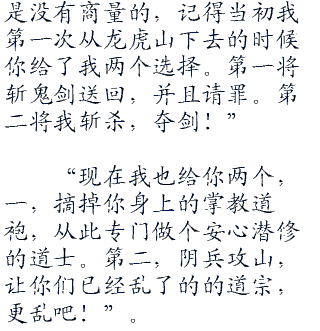 是没有商量的，记得当初我
第一次从龙虎山下去的时候
你给了我两个选择。第一将
斩鬼剑送回，并且请罪。第
二将我斩杀，夺剑！”
“现在我也给你两个，
一，摘掉你身上的掌教道
袍，从此专门做个安心潜修
的道士。第二，阴兵攻山，
让你们已经乱了的的道宗，
更乱吧！”。